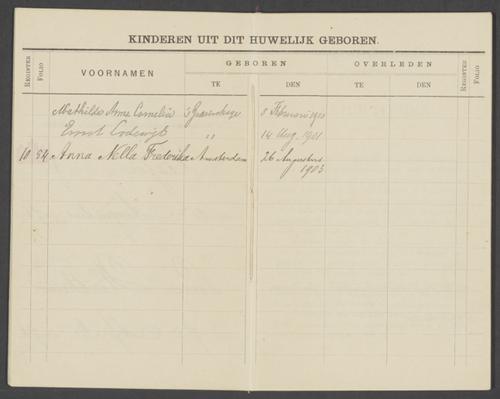 KINDEREN UIT DIT HUWELIJK GEBOREN.
REGISTER
FOLIO
VOORNAMEN
GEBOREN
OVERLEDEN
TE
DEN
TE
DEN
Mathilde Anna Cornelia 's Gravenhage 8 Februari
Ernst Lodewijk " 14 Aug. 1901
10 84 Anna Nella Frederika Amsterdam 26 Augustus
1903